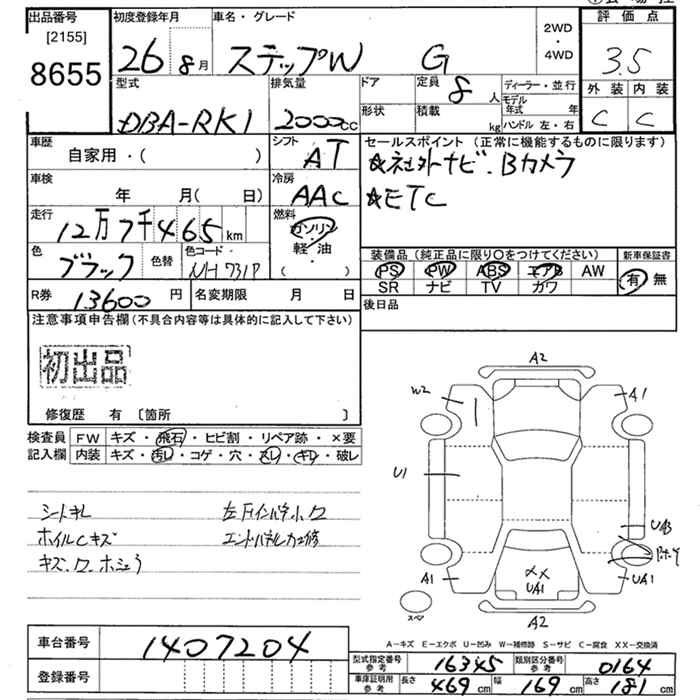 出品番号
[2155]
8655
初度登録年月
26 8月
車名・グレード
ステップW G
2WD
・
4WD
評価点
3.5
外装 内装
C C
型式
DBA-RK1
排気量
2000cc
ドア
形状
定員 8人
積載 kg
ディーラー・並行
モデル年式 年
ハンドル 左・右
車歴
自家用・( )
シフト
AT
セールスポイント (正常に機能するものに限ります)
☆社外ナビ.Bカメラ
☆ETC
車検
年 月(日)
冷房
AAC
走行
12万7千465km
燃料
ガソリン
軽・油
( )
色
ブラック
色替
色コード
NH731P
装備品(純正品に限り○をつけてください)
PS PW ABS エアB AW
SR ナビ TV カワ
新車保証書
有 無
R券 13600円
名変期限 月 日
後日品
注意事項申告欄(不具合内容等は具体的に記入して下さい)
初出品
修復歴 有 〔箇所 〕
検査員
記入欄
FW キズ・飛石・ヒビ割・リペア跡・×要
内装 キズ・汚レ・コゲ・穴・スレ・キレ・破レ
シートキレ
ホイルCキズ
キズ.ワ.ホシュウ
エンドパネルカエ修
A2
W2
A1
U1
UA3
A1
UA1
XX
UA1
A2
スペア
A-キズ E-エクボ U-凹み W-補修跡 S-サビ C-腐食 XX-交換済
車台番号
1407204
登録番号
型式指定番号
参考
16345
類別区分番号
参考
0164
車庫証明用
参考
長さ 469cm
幅 169cm
高さ 181cm